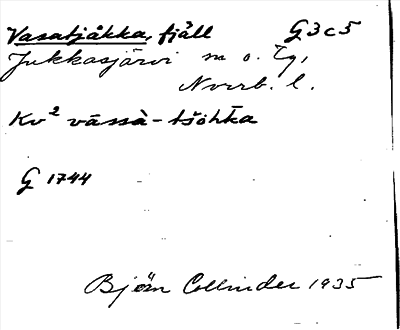 Vasatjåkka, fjäll G3c5
Jukkasjärvi sn o. tg,
Norrb. l.
Kv² vāssà-tšohkka
G 1744
Björn Collinder 1935